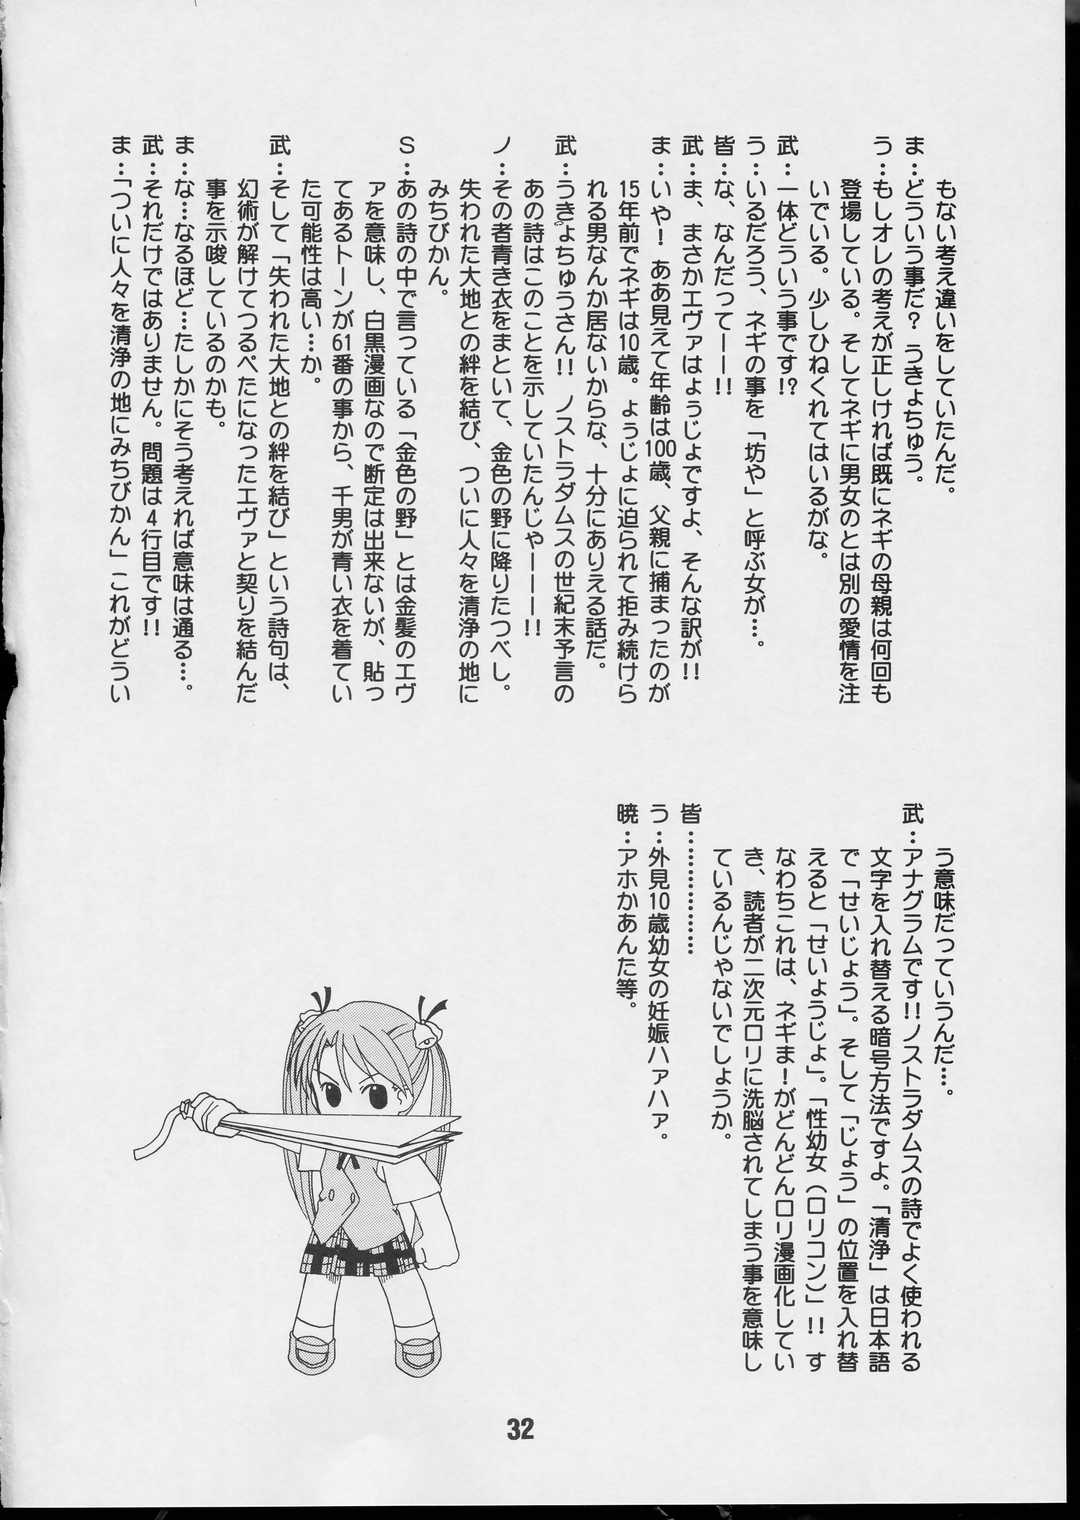 もない考え違いをしていたんだ。
ま…どういう事だ? うきょちゅう。
う…もしオレの考えが正しければ既にネギの母親は何回も
登場している。そしてネギに男女のとは別の愛情を注
いでいる。少しひねくれてはいるがな。
武…一体どういう事です!?
う…いるだろう、ネギの事を「坊や」と呼ぶ女が…。
皆…な、なんだってーー!!
武…ま、まさかエヴァはょぅじょですよ、そんな訳が!!
ま…いや! ああ見えて年齢は100歳、父親に捕まったのが
15年前でネギは10歳。ょぅじょに迫られて拒み続けら
れる男なんか居ないからな、十分にありえる話だ。
武…うきょちゅうさん!! ノストラダムスの世紀末予言の
あの詩はこのことを示していたんじゃーーー!!
ノ…その者青き衣をまといて、金色の野に降りたつべし。
失われた大地との絆を結び、ついに人々を清浄の地に
みちびかん。
S…あの詩の中で言っている「金色の野」とは金髪のエヴ
ァを意味し、白黒漫画なので断定は出来ないが、貼っ
てあるトーンが61番の事から、千男が青い衣を着てい
た可能性は高い…か。
武…そして「失われた大地との絆を結び」という詩句は、
幻術が解けてつるぺたになったエヴァと契りを結んだ
事を示唆しているのかも。
ま…な…なるほど…たしかにそう考えれば意味は通る…。
武…それだけではありません。問題は4行目です!!
ま…「ついに人々を清浄の地にみちびかん」これがどうい
う意味だっていうんだ…。
武…アナグラムです!!ノストラダムスの詩でよく使われる
文字を入れ替える暗号方法ですよ。「清浄」は日本語
で「せいじょう」。そして「じょう」の位置を入れ替
えると「せいょうじょ」。「性幼女(ロリコン)」!! す
なわちこれは、ネギま!がどんどんロリ漫画化してい
き、読者が二次元ロリに洗脳されてしまう事を意味し
ているんじゃないでしょうか。
皆………………
う…外見10歳幼女の妊娠ハァハァ。
暁…アホかあんた等。
32